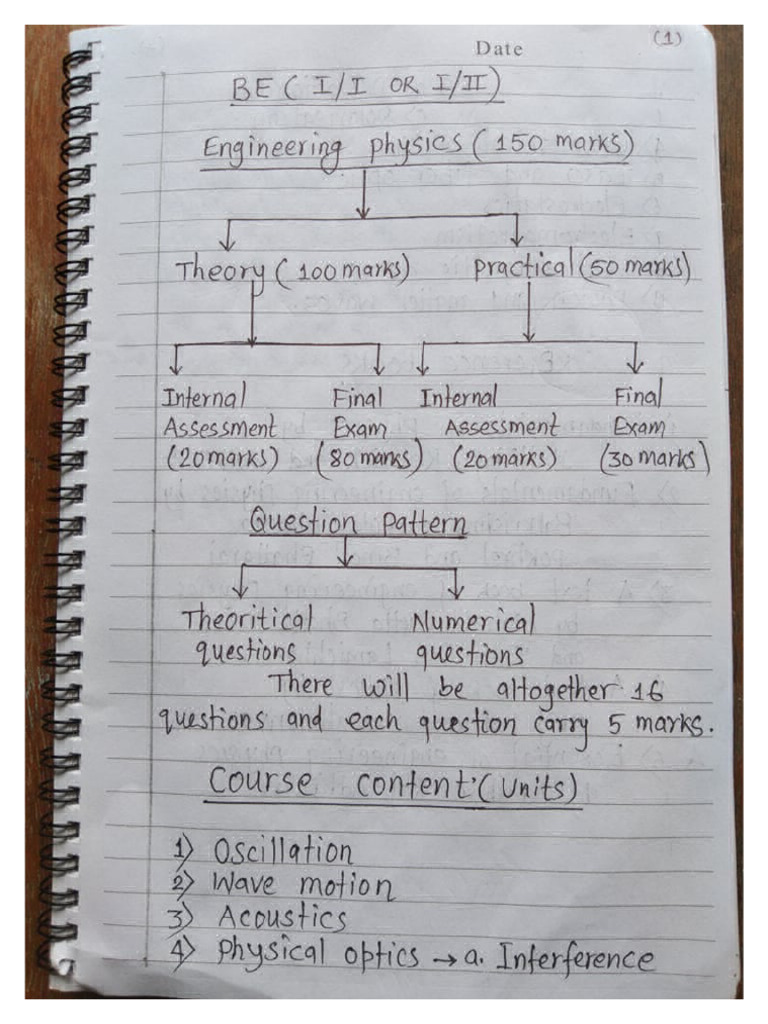 (1)
Date
BE ( I/I OR I/II)
Engineering physics ( 150 marks)
Theory ( 100 marks) practical (50 marks)
Internal Final Internal Final
Assessment Exam Assessment Exam
(20 marks) (80 marks) (20 marks) (30 marks)
Question pattern
Theoritical Numerical
questions questions
There will be altogether 16
questions and each question carry 5 marks.
Course content (Units)
1) Oscillation
2) Wave motion
3) Acoustics
4) Physical optics → a. Interference